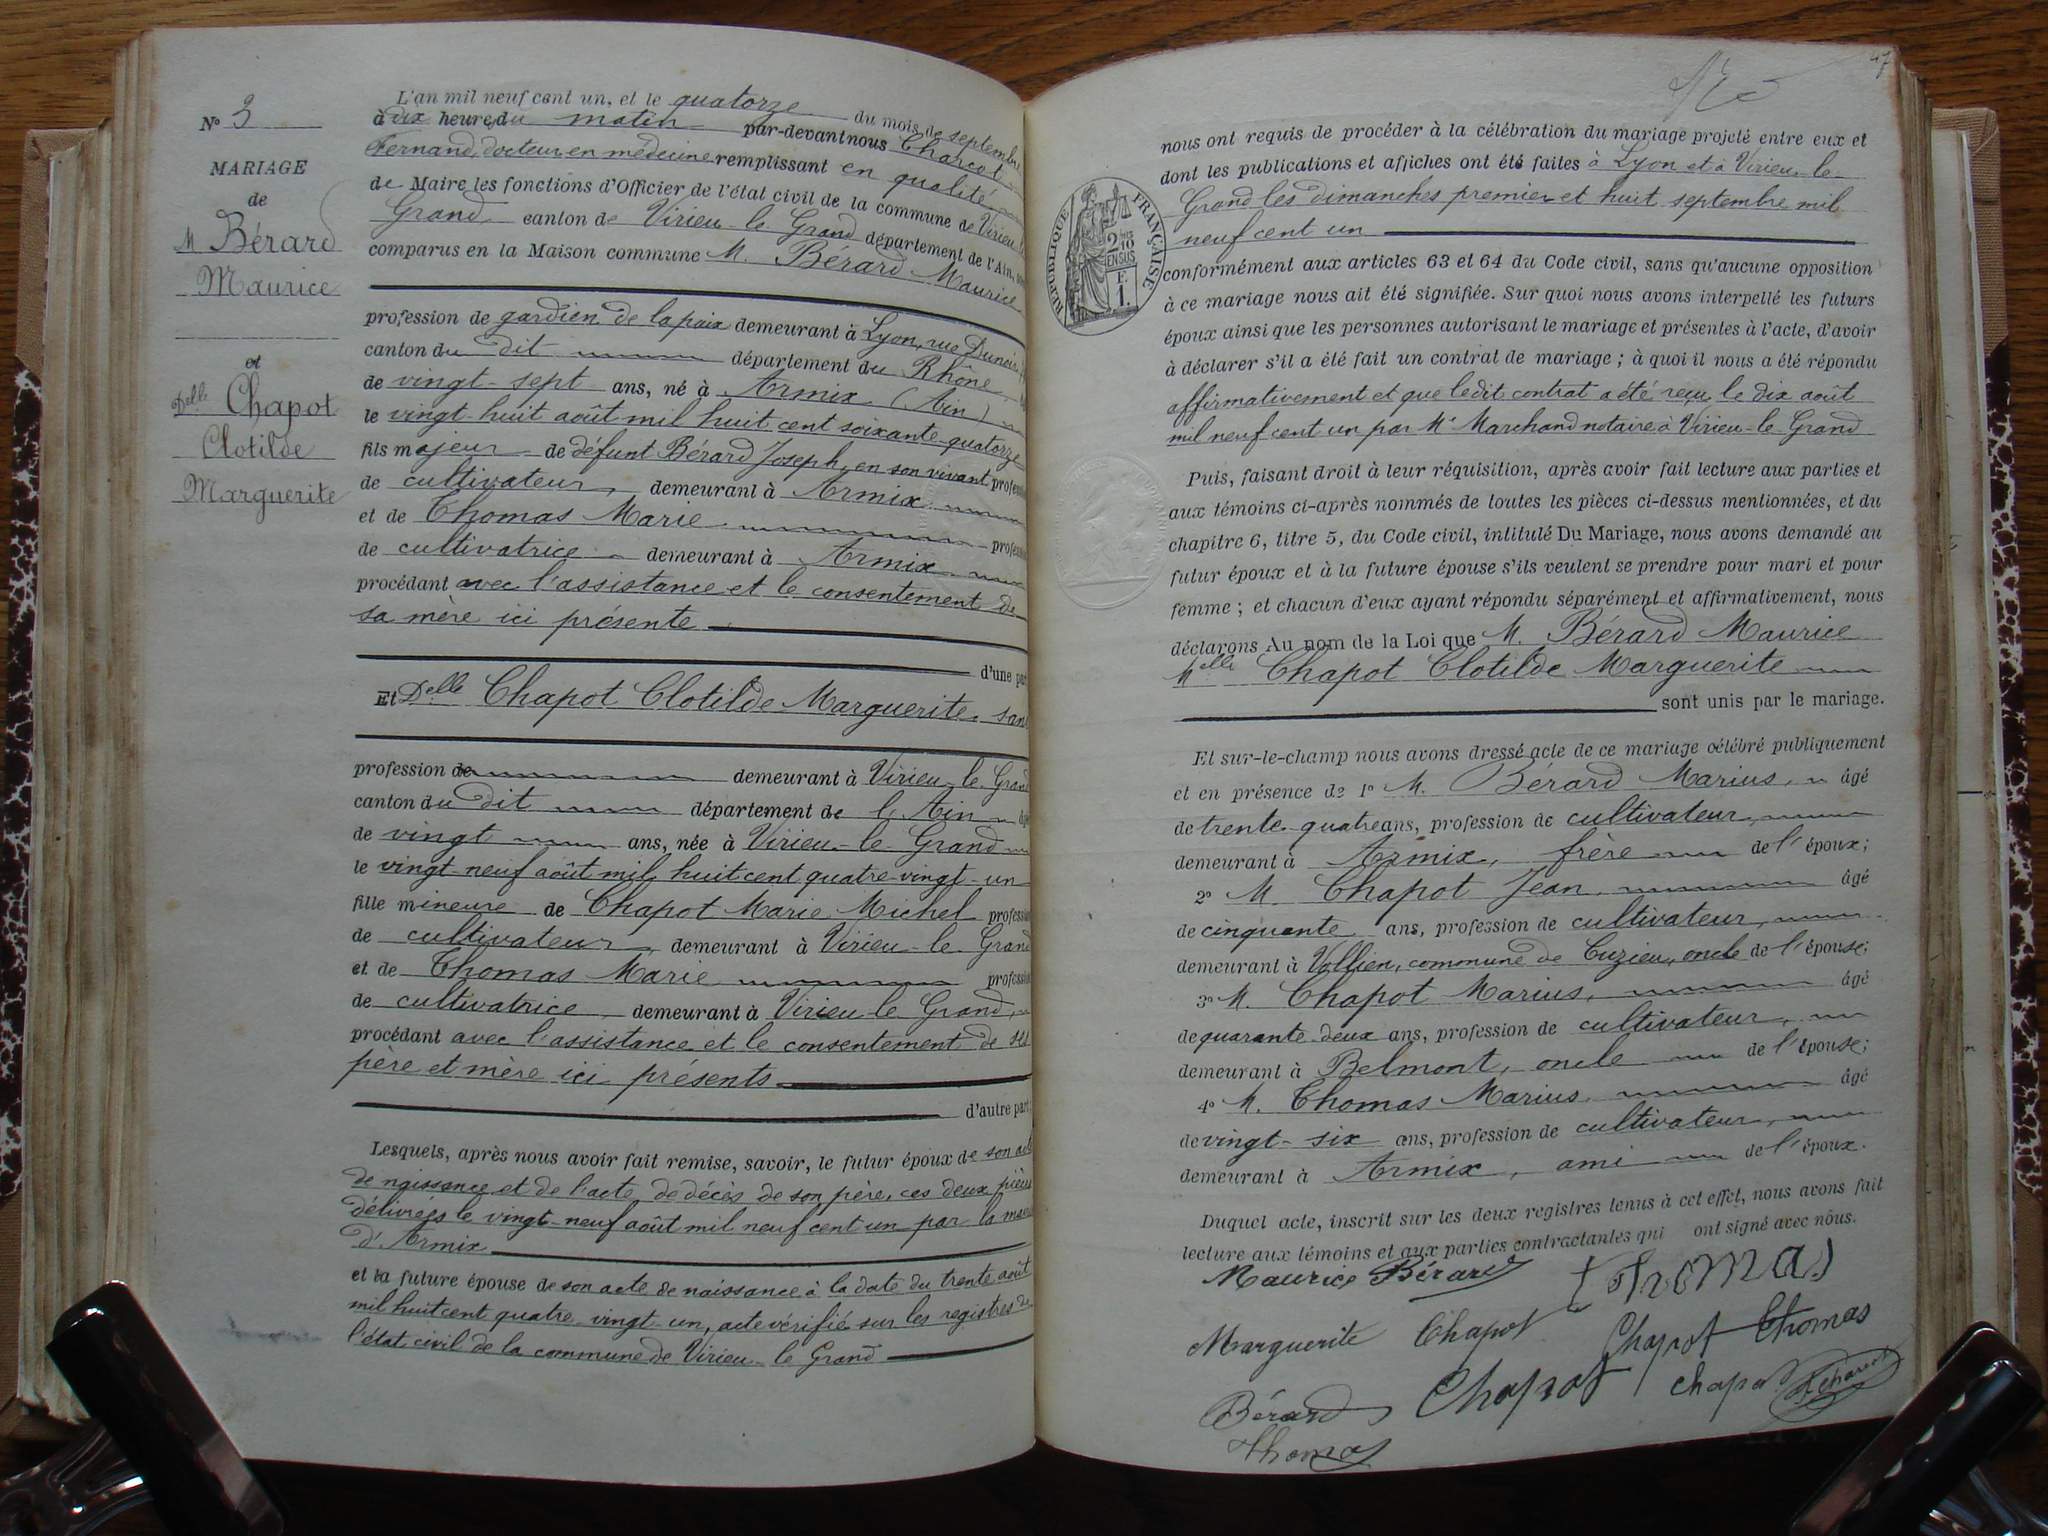 N° 3
MARIAGE
de
M Bérard
Maurice
et
Delle Chapot
Clotilde
Marguerite
L'an mil neuf cent un, et le quatorze du mois de septembre
à dix heures du matin par-devant nous Charcot
Fernand, docteur en médecine remplissant en qualité
de Maire les fonctions d'Officier de l'état civil de la commune de Virieu le
Grand canton de Virieu-le Grand département de l'Ain,
comparus en la Maison commune M. Bérard Maurice
profession de gardien de la paix demeurant à Lyon, rue Dunoir
canton du dit département du Rhône
de vingt-sept ans, né à Armix (Ain)
le vingt-huit août mil huit cent soixante-quatorze
fils majeur de défunt Bérard Joseph, en son vivant profession
de cultivateur, demeurant à Armix
et de Thomas Marie profession
de cultivatrice demeurant à Armix
procédant avec l'assistance et le consentement de
sa mère ici présente
d'une part
Et Delle Chapot Clotilde Marguerite sans
profession de demeurant à Virieu-le-Grand
canton du dit département de l'Ain
de vingt ans, née à Virieu-le-Grand
le vingt-neuf août mil huit cent quatre-vingt-un
fille mineure de Chapot Marie Michel profession
de cultivateur, demeurant à Virieu-le-Grand
et de Thomas Marie profession
de cultivatrice, demeurant à Virieu-le Grand,
procédant avec l'assistance et le consentement de ses
père et mère ici présents
d'autre part
Lesquels, après nous avoir fait remise, savoir, le futur époux de son acte
de naissance et de l'acte de décès de son père, ces deux pièces
délivrées le vingt-neuf août mil neuf cent un par la mairie
d'Armix
et la future épouse de son acte de naissance à la date du trente août
mil huit cent quatre-vingt-un, acte vérifié sur les registres de
l'état civil de la commune de Virieu-le Grand
47
nous ont requis de procéder à la célébration du mariage projeté entre eux et
dont les publications et affiches ont été faites à Lyon et à Virieu-le-
Grand les dimanches premier et huit septembre mil
neuf cent un
RÉPUBLIQUE FRANÇAISE
conformément aux articles 63 et 64 du Code civil, sans qu'aucune opposition
à ce mariage nous ait été signifiée. Sur quoi nous avons interpellé les futurs
époux ainsi que les personnes autorisant le mariage et présentes à l'acte, d'avoir
à déclarer s'il a été fait un contrat de mariage ; à quoi il nous a été répondu
affirmativement et que ledit contrat a été reçu le dix août
mil neuf cent un par Me Marchand notaire à Virieu-le-Grand
Puis, faisant droit à leur réquisition, après avoir fait lecture aux parties et
aux témoins ci-après nommés de toutes les pièces ci-dessus mentionnées, et du
chapitre 6, titre 5, du Code civil, intitulé Du Mariage, nous avons demandé au
futur époux et à la future épouse s'ils veulent se prendre pour mari et pour
femme ; et chacun d'eux ayant répondu séparément et affirmativement, nous
déclarons Au nom de la Loi que M. Bérard Maurice
Melle Chapot Clotilde Marguerite
sont unis par le mariage.
Et sur-le-champ nous avons dressé acte de ce mariage célébré publiquement
et en présence de 1° M. Bérard Marius, âgé
de trente-quatre ans, profession de cultivateur,
demeurant à Armix, frère de l'époux;
2° M. Chapot Jean, âgé
de cinquante ans, profession de cultivateur,
demeurant à Vollien, commune de Cuzieu, oncle de l'épouse;
3° M. Chapot Marius, âgé
de quarante-deux ans, profession de cultivateur,
demeurant à Belmont, oncle de l'épouse;
4° M. Thomas Marius, âgé
de vingt-six ans, profession de cultivateur,
demeurant à Armix, ami de l'époux.
Duquel acte, inscrit sur les deux registres tenus à cet effet, nous avons fait
lecture aux témoins et aux parties contractantes qui ont signé avec nous.
Maurice Bérard Thomas
Marguerite Chapot Chapot Thomas
Bérard Chapot Chapot F Charcot
Thomas